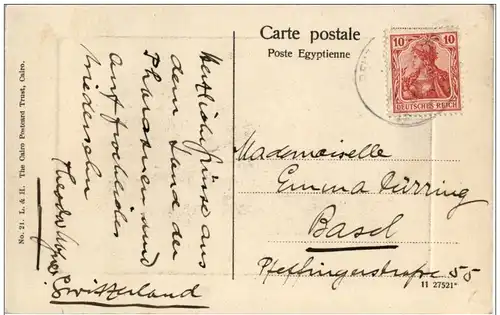 Carte postale
Poste Egyptienne
10 10
DEUTSCHES REICH
No. 21. L. & H. The Cairo Postcard Trust, Cairo.
Herzliche Grüsse aus
dem Land der
Pharaonen und
auf frohes
Wiedersehn
Theodor
Switzerland
Mademoiselle
Emma Dürring
Basel
Pfeffingerstrasse 55
11 27521*